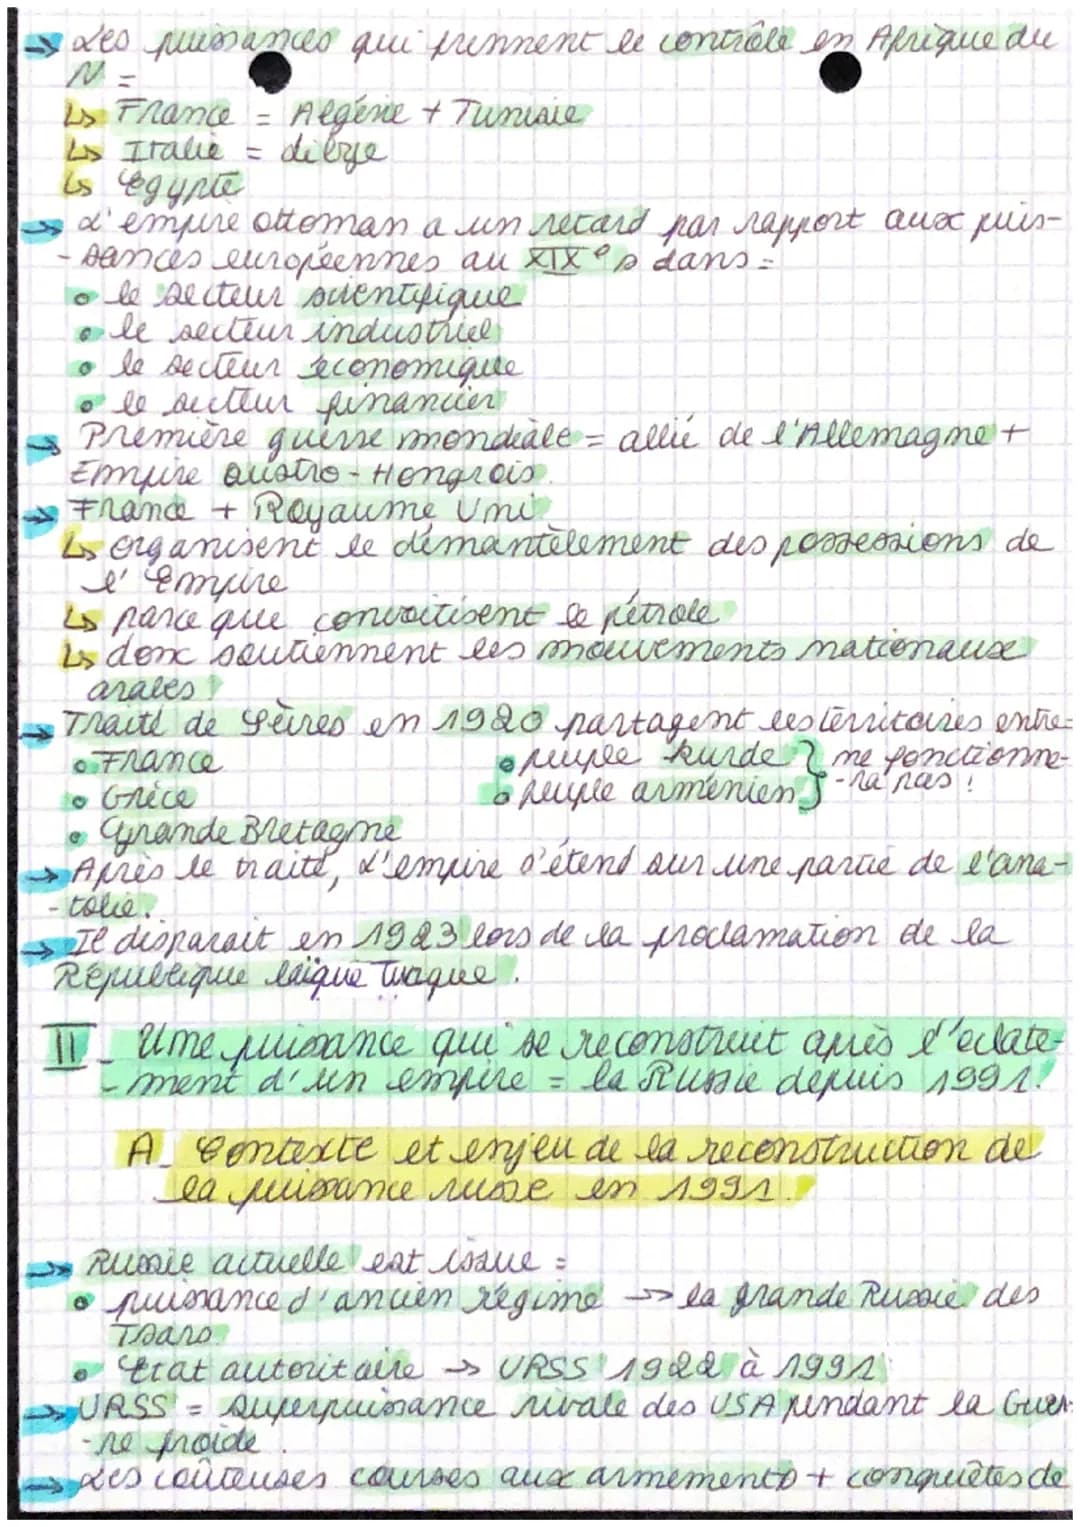 → Les puissances qui prennent le contrôle en Afrique du
N =
↳ France = Algérie + Tunisie
↳ Italie = Libye
↳ Egypte
→ L'empire ottoman a un retard par rapport aux puis-
-sances européennes au XIXe s dans =
• le secteur scientifique
• le secteur industriel
• le secteur économique
• le secteur financier
→ Première guerre mondiale = allié de l'Allemagne +
Empire austro-Hongrois.
→ France + Royaume Uni
↳ organisent le démantèlement des possessions de
l'Empire
↳ parce que convoitisent le pétrole
↳ donc soutiennent les mouvements nationaux
arabes !
→ Traité de Sèvres en 1920 partagent les territoires entre=
• France • peuple kurde } ne fonctionne-
• Grèce • peuple arménien } -ra pas !
• Grande Bretagne
→ Après le traité, l'empire s'étend sur une partie de l'ana-
-tolie.
→ Il disparait en 1923 lors de la proclamation de la
République laïque Turque.
II - Une puissance qui se reconstruit après l'éclate-
-ment d'un empire = la Russie depuis 1991.
A_ Contexte et enjeu de la reconstruction de
la puissance russe en 1991.
→ Russie actuelle est issue =
• puissance d'ancien régime → la grande Russie des
Tsars.
• Etat autoritaire → URSS 1922 à 1991.
→ URSS = superpuissance rivale des USA pendant la Guer-
-re froide.
→ Les coûteuses courses aux armements + conquêtes de